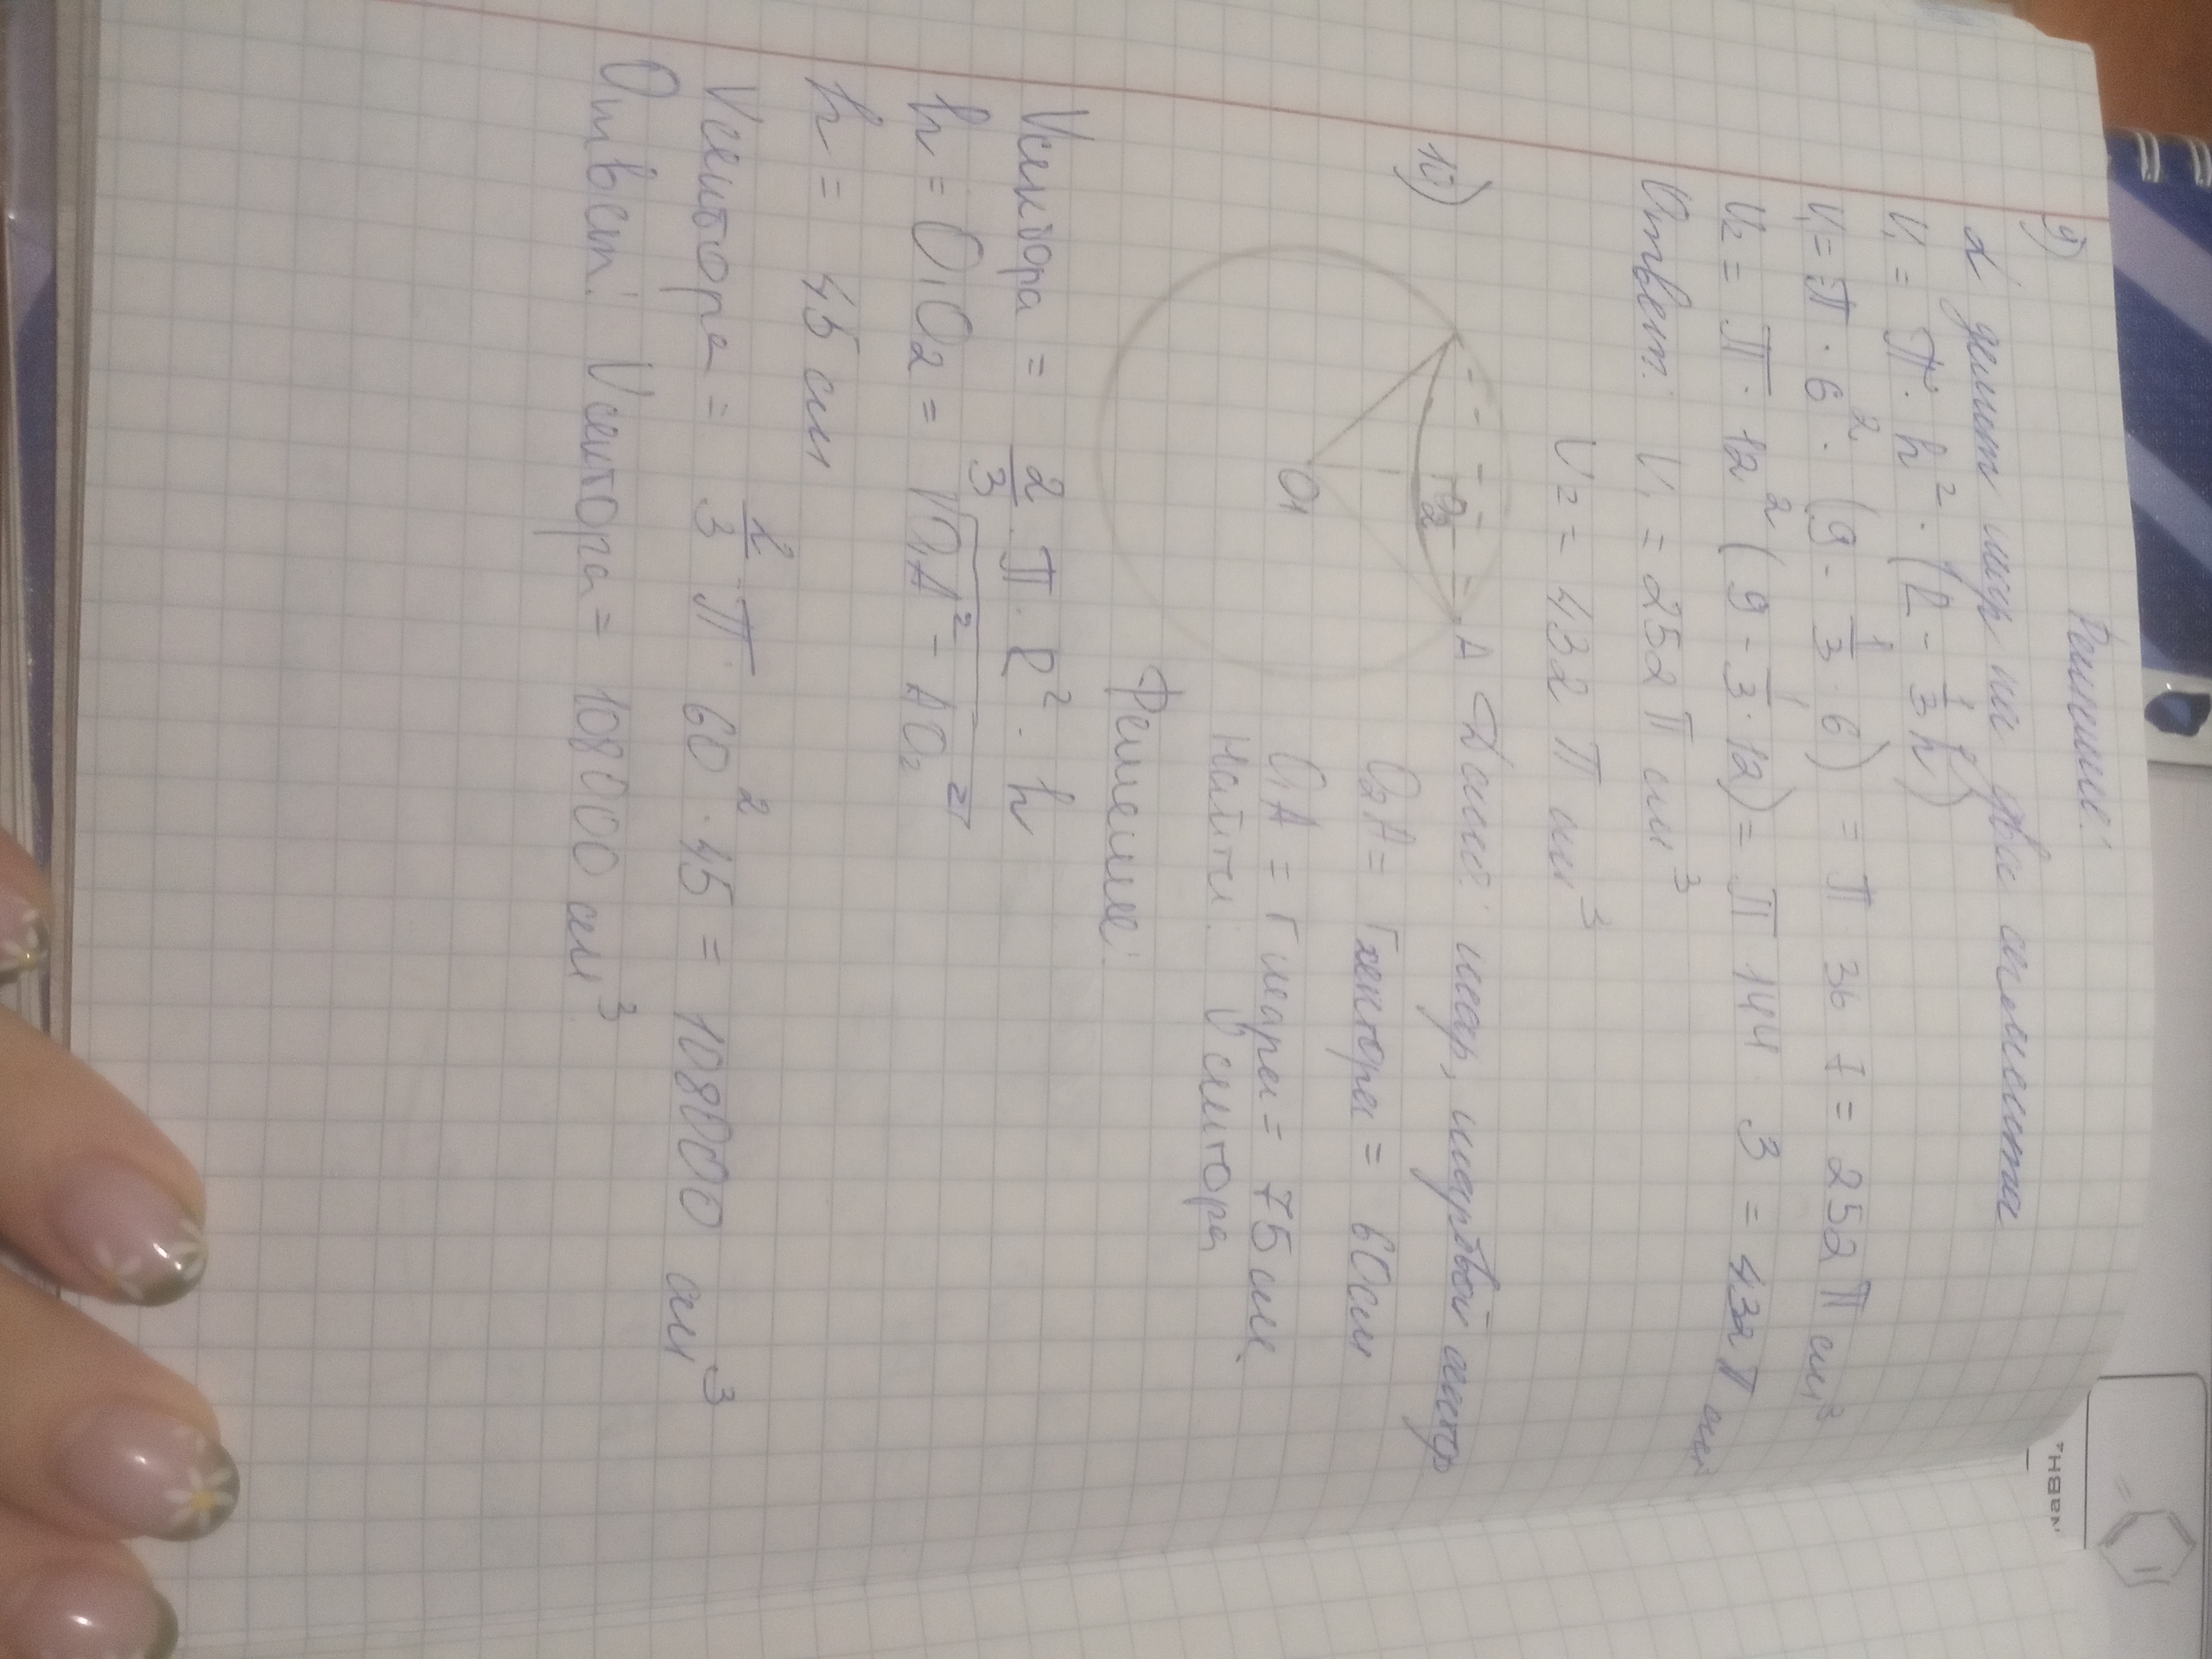 9) Решение:
α делит шар на два сегмента
V₁ = π · h² · (R - 1/3 h)
V₁ = π · 6² · (9 - 1/3 · 6) = π 36 7 = 252 π см³
V₂ = π · 12² (9 - 1/3 · 12) = π 144 3 = 432 π см³
Ответ: V₁ = 252 π см³
V₂ = 432 π см³
10) A O₂ O₁
Дано: шар, шаровой сектор
O₂A = r сектора = 60 см
O₁A = r шара = 75 см.
Найти: V сектора
Решение:
Vсектора = 2/3 · π · R² · h
h = O₁O₂ = √(O₁A² - AO₂²)
h = 45 см
Vсектора = 2/3 · π · 60² · 45 = 108000 см³
Ответ: Vсектора = 108000 см³
NaBH₄